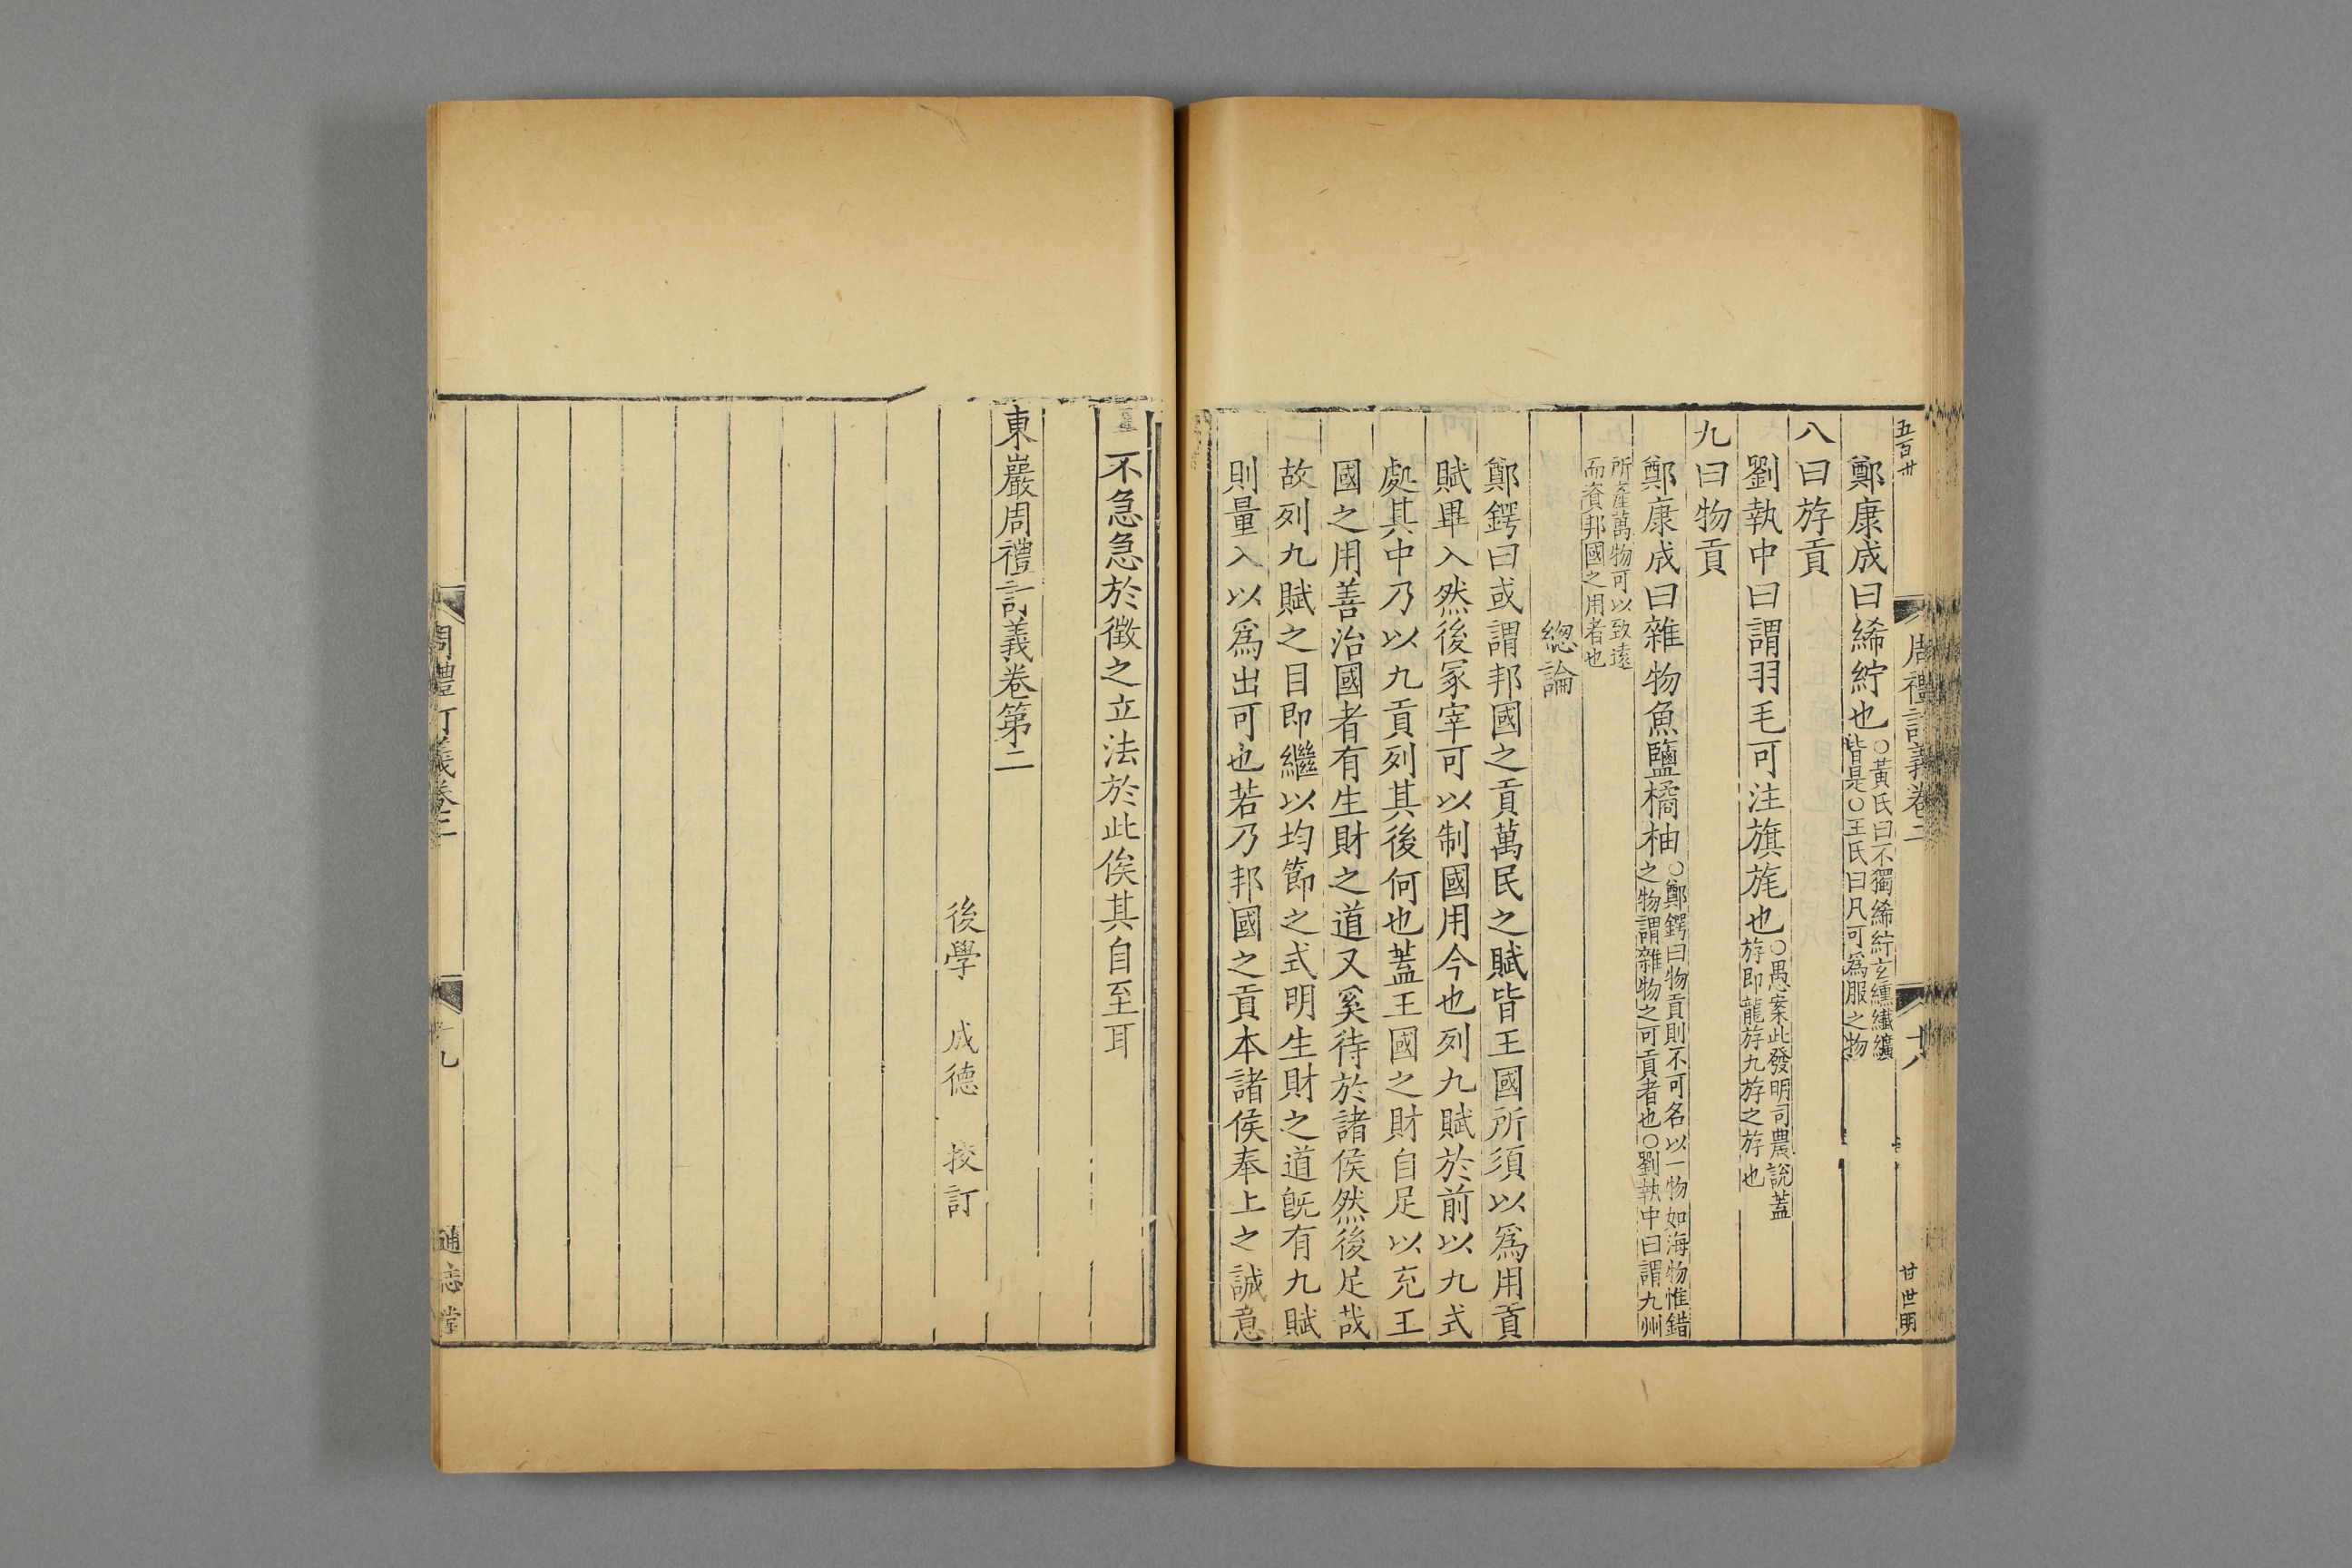 五百卅
周禮訂義卷二
十八
甘世明
鄭康成曰絺紵也○黃氏曰不獨絺紵玄纁纖纊
皆是○王氏曰凡可爲服之物
八曰斿貢
劉執中曰謂羽毛可注旗旄也○愚案此發明司農說蓋
斿即龍斿九斿之斿也
九曰物貢
鄭康成曰雜物魚鹽橘柚○鄭鍔曰物貢則不可名以一物如海物惟錯
之物謂雜物之可貢者也○劉執中曰謂九州
所產萬物可以致遠
而資邦國之用者也
緫論
鄭鍔曰或謂邦國之貢萬民之賦皆王國所須以爲用貢
賦畢入然後冢宰可以制國用今也列九賦於前以九式
處其中乃以九貢列其後何也蓋王國之財自足以充王
國之用善治國者有生財之道又奚待於諸侯然後足哉
故列九賦之目即繼以均節之式明生財之道旣有九賦
則量入以爲出可也若乃邦國之貢本諸侯奉上之誠意
不急急於徵之立法於此俟其自至耳
東巖周禮訂義卷第二
後學 成德 挍訂
周禮訂義卷二
十九
通志堂